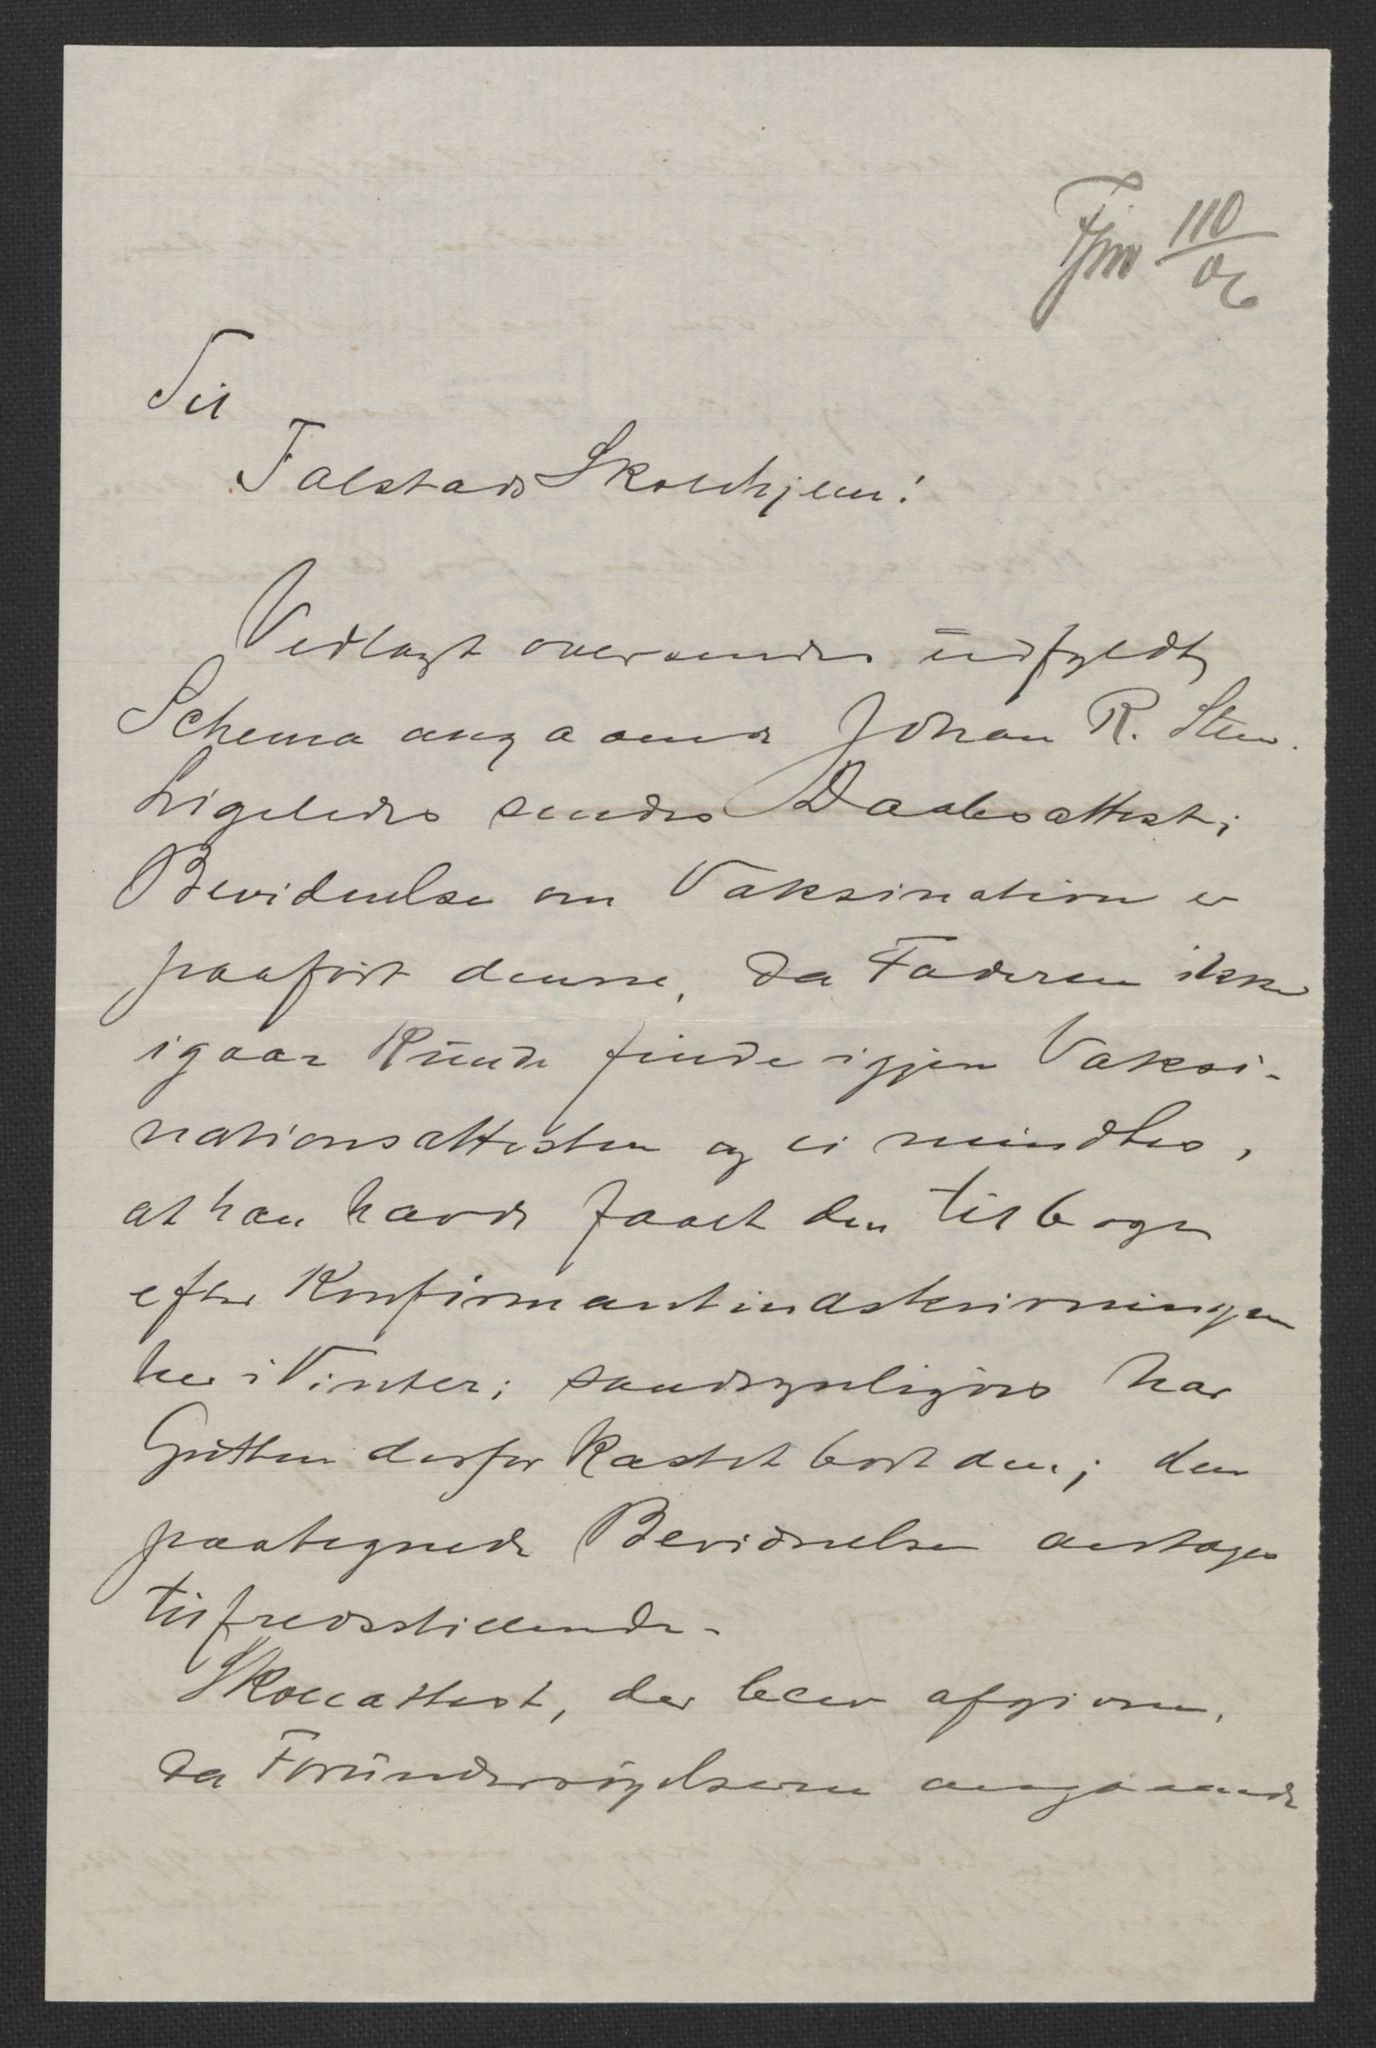 Fjm 110/06
Til
Falstads Skolehjem!
Vedlagt oversendes udfyldt
Schema angaaende Johan R. Steen.
Ligeledes sendes Daabsattest;
Bevidnelse om Vaksination er
paaført denne, da Faderen ikke
igaar kunde finde igjen Vaksi-
nationsattesten og ei mindtes,
at han havde faaet den tilbage
efter Konfirmantindskrivningen
her i Vinter; sandsynligvis har
Gutten derfor kastet bort den; den
paategnede Bevidnelse antages
tilfredsstillende.
Skoleattest, der blev afgiven,
da Forundersøgelserne angaaende